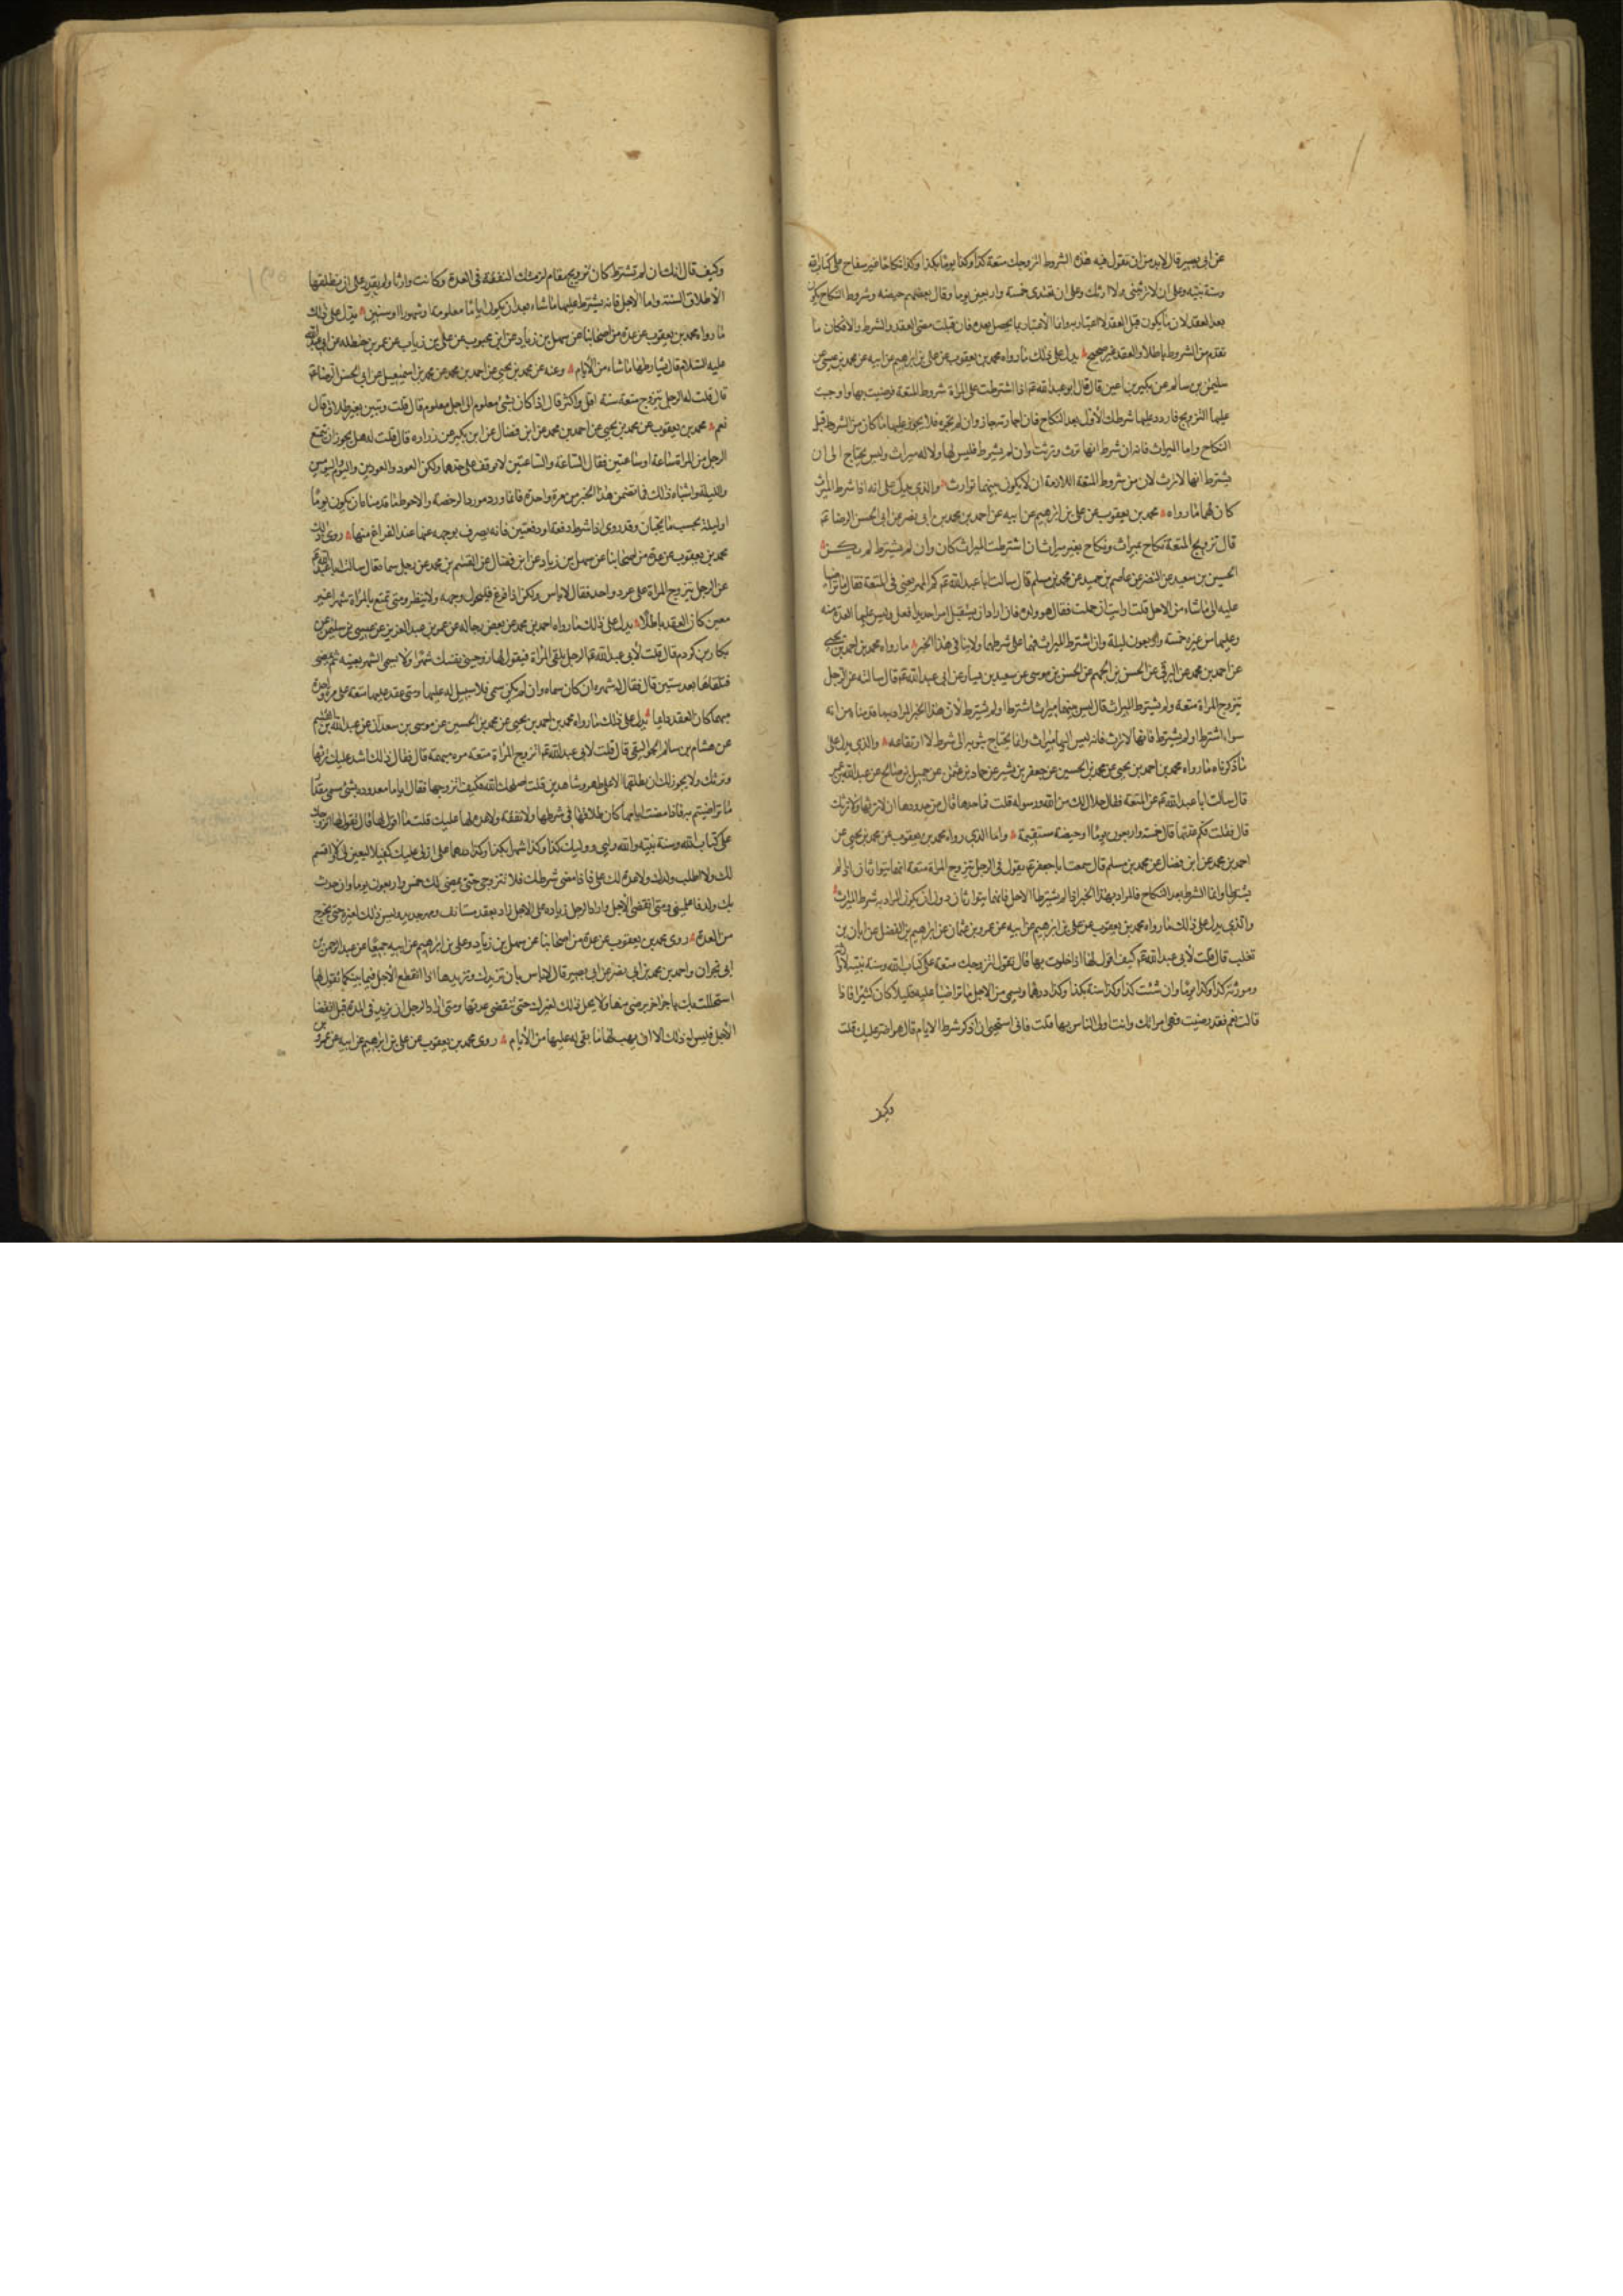 عن ابى بصير قال لابد من ان تقول فيه هذه الشروط اتزوجك متعة كذا وكذا يوما بكذا وكذا نكاحا غير سفاح على كتاب الله
وسنة نبيه وعلى ان لا ترثينى ولا ارثك وعلى ان تعتدى خمسة واربعين يوما وقال بعضهم حيضة وشروط النكاح يكون
بعد العقد لان ما يكون قبل العقد لا اعتبار به وانما الاعتبار بما يحصل بعده فان قبلت مضى العقد والشرط والا فكان ما
تقدم من الشروط باطلا والعقد غير صحيح يدل على ذلك ما رواه محمد بن يعقوب عن على بن ابرهيم عن ابيه عن محمد بن عيسى عن
سليمن بن سالم عن بكير بن اعين قال قال ابو عبد الله ع اذا اشترطت على المراة شروط المتعة فرضيت بها واوجبت
عليها التزويج فاردد عليها شرطك الاول بعد النكاح فان اجازته جاز وان لم تجزه فلا يجوز عليها ما كان من الشرط قبل
النكاح واما الميراث فانه ان شرط انها ترث وتورث وان لم يشترط فليس لها ولا له ميراث وليس يحتاج الى ان
يشترط انها لا ترث لان من شروط المتعة اللازمة ان لا يكون بينهما توارث والذى يدل على انه اذا شرط الميراث
كان لهما ما رواه محمد بن يعقوب عن على بن ابرهيم عن ابيه عن احمد بن محمد بن ابى نصر عن ابى الحسن الرضا ع
قال تزويج المتعة نكاح بميراث ونكاح بغير ميراث ان اشترطت الميراث كان وان لم يشترط لم يكن
الحسين بن سعيد عن النضر عن عاصم بن حميد عن محمد بن مسلم قال سالت ابا عبد الله ع كم المهر يعنى فى المتعة فقال ما تراضيا
عليه الى ما شاء من الاجل قلت ارايت ان حملت فقال هو ولده فان اراد ان يستقبل امرا جديدا فعل وليس عليها العدة منه
وعليها من غيره خمسة واربعون ليلة وان اشترط الميراث فهما على شرطهما ولا ينافى هذا الخبر ما رواه محمد بن احمد بن يحيى
عن احمد بن محمد عن البرقى عن الحسن بن الجهم عن الحسن بن موسى عن سعيد بن يسار عن ابى عبد الله ع قال سالته عن الرجل
يتزوج المراة متعة ولم يشترط الميراث قال ليس بينهما ميراث اشترط او لم يشترط لان هذا الخبر المراد به ما قدمناه من انه
سواء اشترط او لم يشترط فانها لا ترث فانه ليس لها ميراث وانما يحتاج ثبوته الى شرط لا ارتفاعه والذى يدل على
ما ذكرناه ما رواه محمد بن احمد بن يحيى عن محمد بن الحسين عن جعفر بن بشير عن حماد بن عثمن عن جميل بن صالح عن عبد الله بن عمر
قال سالت ابا عبد الله ع عن المتعة فقال حلال لك من الله ورسوله قلت فما حدها قال من حدودها ان لا ترثها ولا ترثك
قال فقلت فكم عدتها قال خمسة واربعون يوما او حيضة مستقيمة واما الذى رواه محمد بن يعقوب عن محمد بن يحيى عن
احمد بن محمد عن ابن فضال عن محمد بن مسلم قال سمعت ابا جعفر ع يقول فى الرجل يتزوج المراة متعة انهما يتوارثان اذا لم
يشترطا وانما الشرط بعد النكاح فالمراد بهذا الخبر اذا لم يشترطا الاجل فانهما يتوارثان دون ان يكون المراد به شرط الميراث
والذى يدل على ذلك ما رواه محمد بن يعقوب عن على بن ابرهيم عن ابيه عن عمرو بن عثمان عن ابرهيم بن الفضل عن ابان بن
تغلب قال قلت لابى عبد الله ع كيف اقول لها اذا خلوت بها قال تقول اتزوجك متعة على كتاب الله وسنة نبيه لا وارثة
وموروثة كذا وكذا يوما وان شئت كذا وكذا سنة بكذا وكذا درهما ويسمى من الاجل ما تراضيتما عليه قليلا كان كثيرا فاذا
قالت نعم فقد رضيت وهى امراتك وانت اولى الناس بها قلت فانى استحيى ان اذكر شرط الايام قال هو اضر عليك قلت
وكيف
وكيف قال انك ان لم تشترط كان تزويج مقام لزمتك النفقة فى العدة وكانت وارثا ولم تقدر على ان تطلقها
الا طلاق السنة واما الاجل فانه يشترط عليها ما شاء بعد ان يكون اياما معلومة او شهورا او سنين يدل على ذلك
ما رواه محمد بن يعقوب عن عدة من اصحابنا عن سهل بن زياد عن ابن محبوب عن على بن رياب عن عمر بن حنظله عن ابى عبد الله
عليه السلام قال يشارطها ما شاء من الايام وعنه عن محمد بن يحيى عن احمد بن محمد عن محمد بن اسمعيل عن ابى الحسن الرضا ع
قال قلت له الرجل يتزوج متعة سنة اقل واكثر قال اذا كان بشى معلوم الى اجل معلوم قال قلت وتبين بغير طلاق قال
نعم محمد بن يعقوب عن محمد بن يحيى عن احمد بن محمد عن ابن فضال عن ابن بكير عن زراره قال قلت له هل يجوز ان يتمتع
الرجل من المراة ساعة او ساعتين فقال الساعة والساعتين لا يوقف على حدهما ولكن العود والعودين واليوم واليومين
والليلة واشباه ذلك فما تضمن هذا الخبر من مرة واحدة فانما ورد مورد الرخصة والاحوط ما قدمناه ان يكون يوما
او ليلة بحسب ما يختاران وقد روى اذا شرط دفعة او دفعتين فانه يصرف بوجهه عنها عند الفراغ منها روى ذلك
محمد بن يعقوب عن عدة من اصحابنا عن سهل بن زياد عن ابن فضال عن القسم بن محمد عن رجل سماه قال سالت ابا عبد الله ع
عن الرجل يتزوج المراة على عرد واحد فقال لا باس ولكن اذا فرغ فليحول وجهه ولا ينظر ومتى تمتع بالمراة شهرا غير
معين كان العقد باطلا يدل على ذلك ما رواه احمد بن محمد عن بعض رجاله عن عمر بن عبد العزيز عن عيسى بن سليمن عن
بكار بن كردم قال قلت لابى عبد الله ع الرجل يلقى المراة فيقول لها زوجينى نفسك شهرا ولا يسمى الشهر بعينه ثم يمضى
فتلقاها بعد سنين قال فقال له شهره ان كان سماه وان لم يكن سمى فلا سبيل له عليها ومتى عقد عليها متعة على مرة واحدة
مبهما كان العقد دايما يدل على ذلك ما رواه محمد بن احمد بن يحيى عن محمد بن الحسين عن موسى بن سعدان عن عبد الله بن القسم
عن هشام بن سالم الجواليقى قال قلت لابى عبد الله ع اتزوج المراة متعة مرة مبهمة قال فقال ذلك اشد عليك ترثها
وترثك ولا يجوز لك ان تطلقها الا على طهر وشاهدين قلت اصلحك الله فكيف اتزوجها فقال اياما معدودة بشى مسمى مقدار
ما تراضيتم به فاذا مضت ايامها كان طلاقها فى شرطها ولا نفقة ولا عدة لها عليك قلت ما اقول لها قال تقول لها اتزوجك
على كتاب الله وسنة نبيه والله وليى ووليك كذا وكذا شهرا بكذا وكذا درهما على ان لى عليك كفيلا لتفين لى ولا اقسم
لك ولا اطلب ولدك ولا عدة لك على فاذا مضى شرطك فلا تتزوجى حتى يمضى لك خمس واربعون يوما وان حدث
بك ولد فاعلمينى ومتى انقضى الاجل واراد الرجل زياده على الاجل زاد بعقد مستانف ومهر جديد وليس ذلك لغيره حتى تخرج
من العدة روى محمد بن يعقوب عن عدة من اصحابنا عن سهل بن زياد وعلى بن ابرهيم عن ابيه جميعا عن عبد الرحمن بن
ابى نجران واحمد بن محمد بن ابى نصر عن ابى بصير قال لا باس بان تزيدك وتزيدها اذا انقطع الاجل فيما بينكما تقول لها
استحللتك باجر اخر برضى منها ولا يحل ذلك لغيرك حتى تنقضى عدتها ومتى اراد الرجل ان يزيد فى المدة قبل انقضا
الاجل فليس له ذلك الا ان يهب لها ما بقى له عليها من الايام روى محمد بن يعقوب عن على بن ابرهيم عن ابيه عن عمرو بن